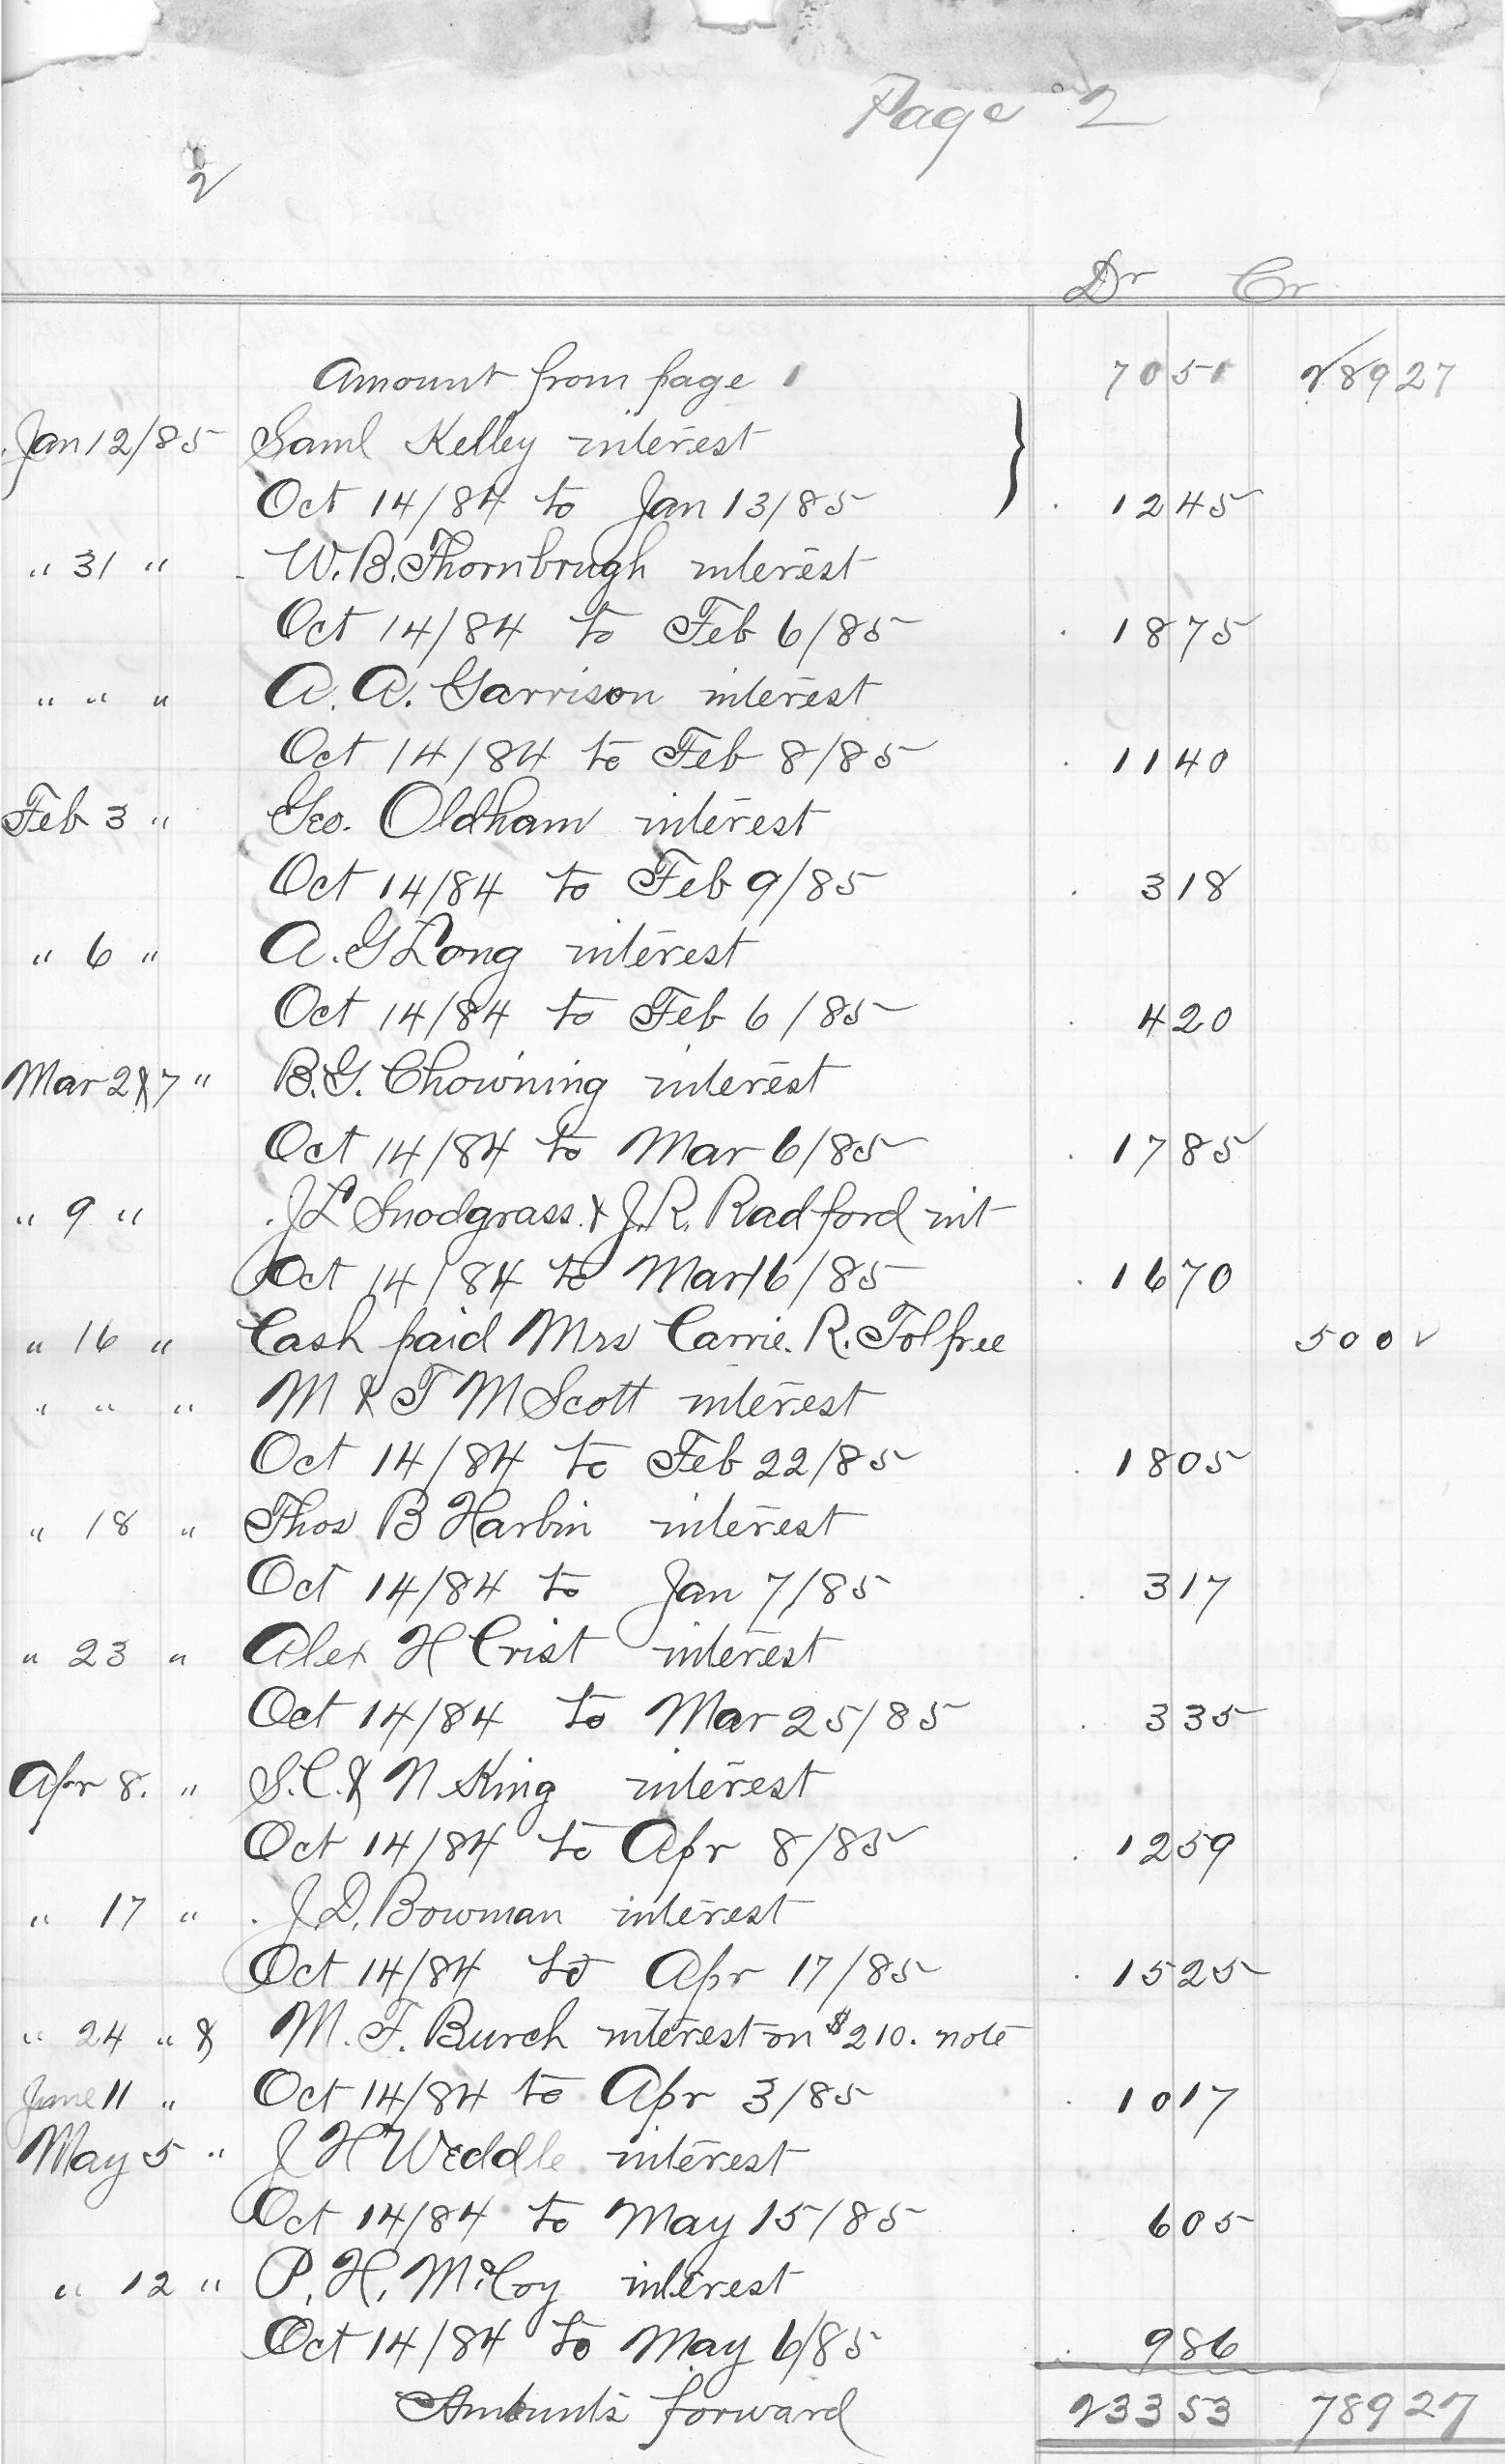 Page 2
2
Dr Cr
Amount from page 1 7051 28927
Jan 12/85 Saml Kelley interest
Oct 14/84 to Jan 13/85 1245
" 31 " W. B. Thornbrugh interest
Oct 14/84 to Feb 6/85 1875
" " " A. A. Garrison interest
Oct 14/84 to Feb 8/85 1140
Feb 3 " Geo. Oldham interest
Oct 14/84 to Feb 9/85 318
" 6 " A. G Long interest
Oct 14/84 to Feb 6/85 420
Mar 2 & 7 " B. G. Chowning interest
Oct 14/84 to Mar 6/85 1785
" 9 " J L Snodgrass. & J. R. Radford int
Oct 14/84 to Mar 16/85 1670
" 16 " Cash paid Mrs Carrie. R. Tolfree 500 ✓
" " " M & T M Scott interest
Oct 14/84 to Feb 22/85 1805
" 18 " Thos B Harbin interest
Oct 14/84 to Jan 7/85 317
" 23 " Alex H Crist interest
Oct 14/84 to Mar 25/85 335
Apr 8. " S. C. & N King interest
Oct 14/84 to Apr 8/85 1259
" 17 " J. D. Bowman interest
Oct 14/84 to Apr 17/85 1525
" 24 " & M. F. Burch interest on $210. note
June 11 " Oct 14/84 to Apr 3/85 1017
May 5 " J H Weddle interest
Oct 14/84 to May 15/85 605
" 12 " P. H. McCoy interest
Oct 14/84 to May 6/85 986
Amounts forward 23353 78927